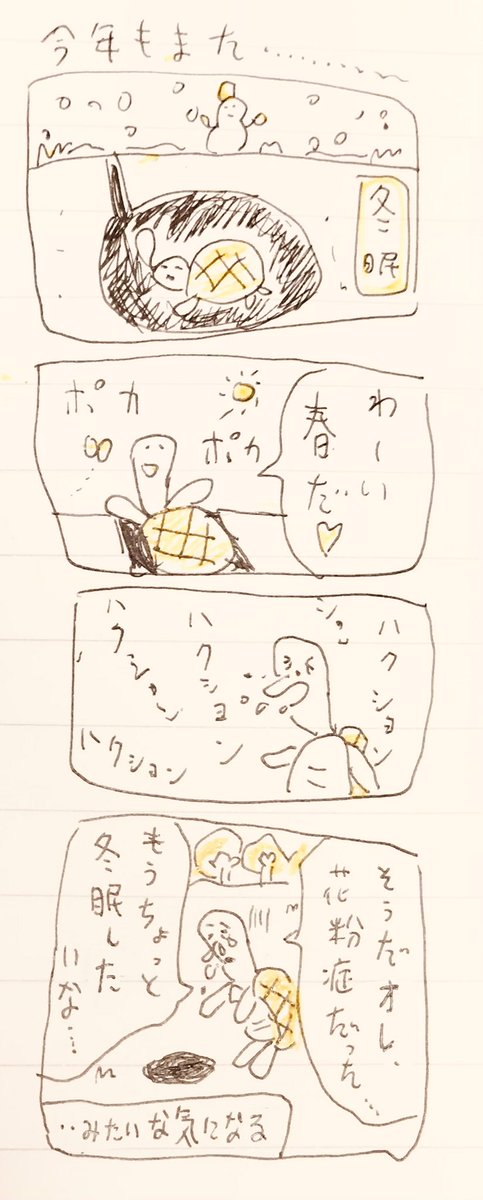 今年もまた………
冬眠
わーい
春だ♡
ポカ
ポカ
ハクション
ション
ハクション
ハクション
ハクション
そうだオレ、
花粉症だった…
もうちょっと
冬眠した
いな…
‥みたいな気になる